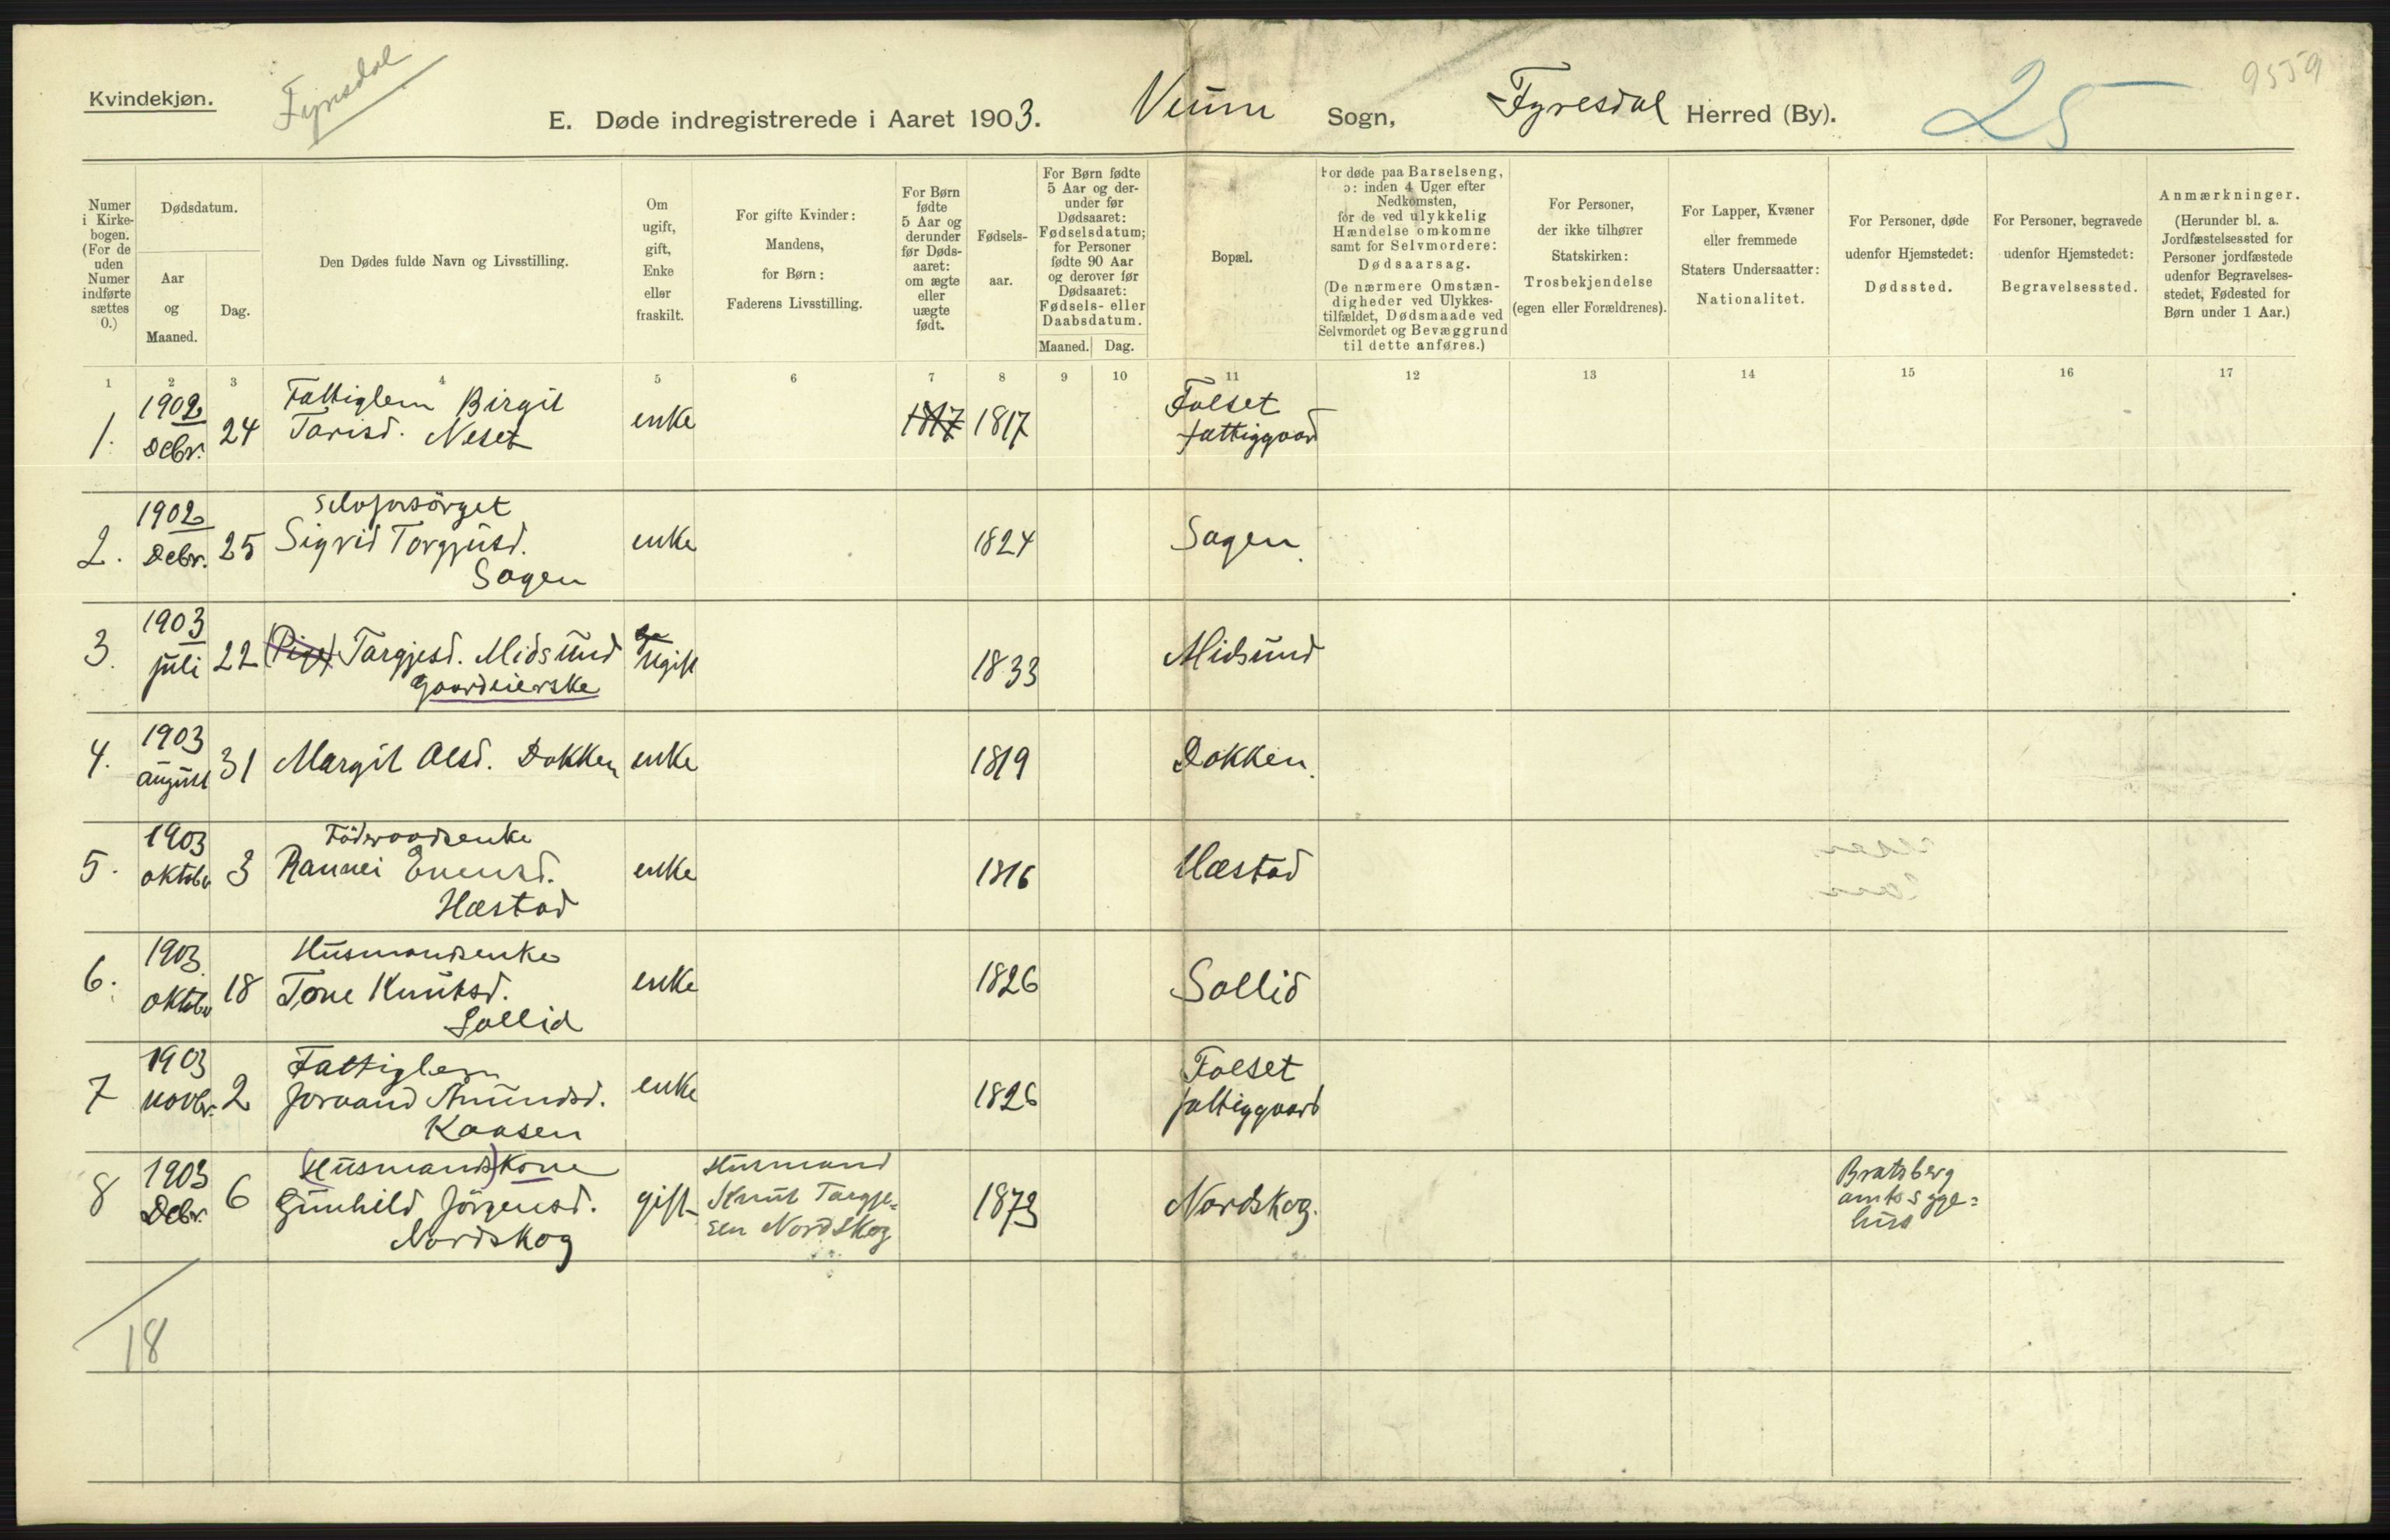 Kvindekjøn.
Fyresdal
E. Døde indregistrerede i Aaret 1903.
Veum Sogn,
Fyresdal Herred (By).
25
9559
Numer
i Kirke-
bogen.
(For de
uden
Numer
indførte
sættes
0.)
Dødsdatum.
Aar
og
Maaned.
Dag.
Den Dødes fulde Navn og Livsstilling.
Om
ugift,
gift,
Enke
eller
fraskilt.
For gifte Kvinder:
Mandens,
for Børn:
Faderens Livsstilling.
For Børn
fødte
5 Aar og
derunder
før Døds-
aaret:
om ægte
eller
uægte
født.
Fødsels-
aar.
For Børn fødte
5 Aar og der-
under før
Dødsaaret:
Fødselsdatum;
for Personer
fødte 90 Aar
og derover før
Dødsaaret:
Fødsels- eller
Daabsdatum.
Maaned. Dag.
Bopæl.
For døde paa Barselseng,
ɔ: inden 4 Uger efter
Nedkomsten,
for de ved ulykkelig
Hændelse omkomne
samt for Selvmordere:
Dødsaarsag.
(De nærmere Omstæn-
digheder ved Ulykkes-
tilfældet, Dødsmaade ved
Selvmordet og Bevæggrund
til dette anføres.)
For Personer,
der ikke tilhører
Statskirken:
Trosbekjendelse
(egen eller Forældrenes).
For Lapper, Kvæner
eller fremmede
Staters Undersaatter:
Nationalitet.
For Personer, døde
udenfor Hjemstedet:
Dødssted.
For Personer, begravede
udenfor Hjemstedet:
Begravelsessted.
Anmærkninger.
(Herunder bl. a.
Jordfæstelsessted for
Personer jordfæstede
udenfor Begravelses-
stedet, Fødested for
Børn under 1 Aar.)
1 2 3 4 5 6 7 8 9 10 11 12 13 14 15 16 17
1. 1902 Debr. 24
Fattiglem Birgit
Tarisd. Neset
enke
1817 1817
Folset
fattiggaard
2. 1902 Debr. 25
Selvforsörget
Sigrid Torgjusd.
Sogen
enke
1824
Sogen
3. 1903 juli 22
(Pige) Targjesd. Midsund
Gaardeierske
ugift
1833
Midsund
4. 1903 august 31
Margit Olsd. Dokken
enke
1819
Dokken.
5. 1903 oktobr 3
Föderaadsenke
Rannei Evensd.
Hæstad
enke
1816
Hæstad
6. 1903 oktobr 18
Husmandsenke
Tone Knutsd.
Sollid
enke
1826
Sollid
7 1903 novbr. 2
Fattiglem
Joraand Amundsd.
Kaasen
enke
1826
Folset
fattiggaard
8 1903 Debr. 6
(Husmands)kone
Gunhild Jörgensd.
Nordskog
gift
Husmand
Knut Targje=
sen Nordskog
1873
Nordskog.
Bratsberg
amtssyge=
hus
18